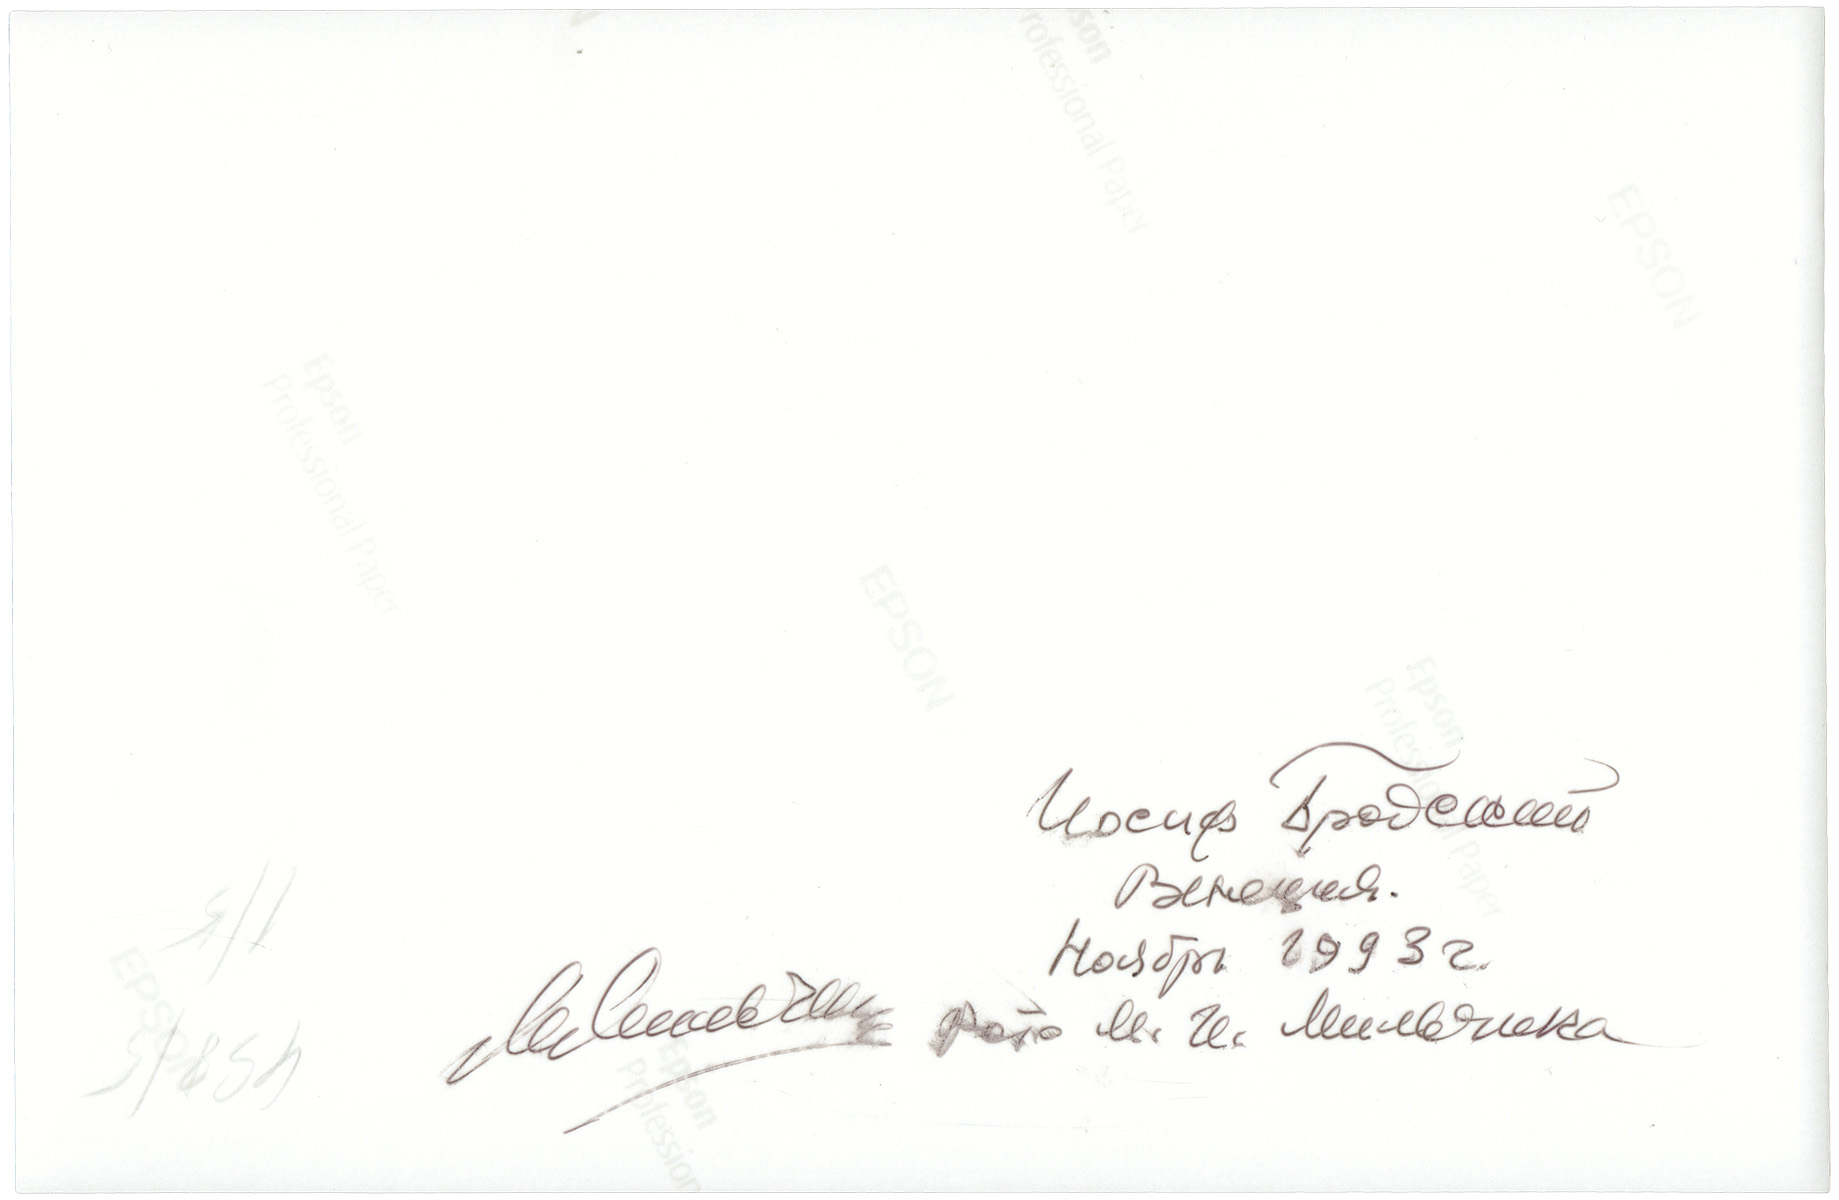 son
rofessional Paper
EPSON
Epson
Professional Paper
EPSON
Epson
Professional Paper
Иосиф Бродский
Венеция.
Ноябрь 1993 г.
Фото М. И. Мильчика
EPSON
Epson
Profession